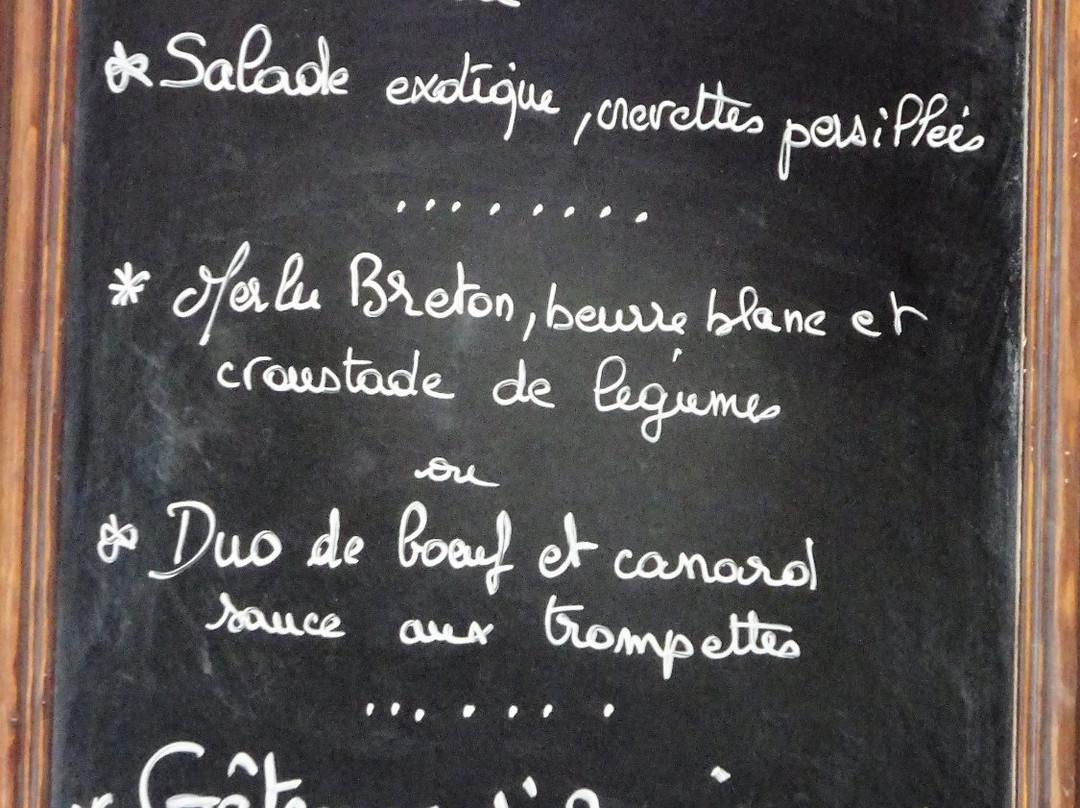 * Salade exotique, crevettes persillées
........
* Merlu Breton, beurre blanc et
croustade de légumes
ou
* Duo de boeuf et canard
sauce aux trompettes
.......